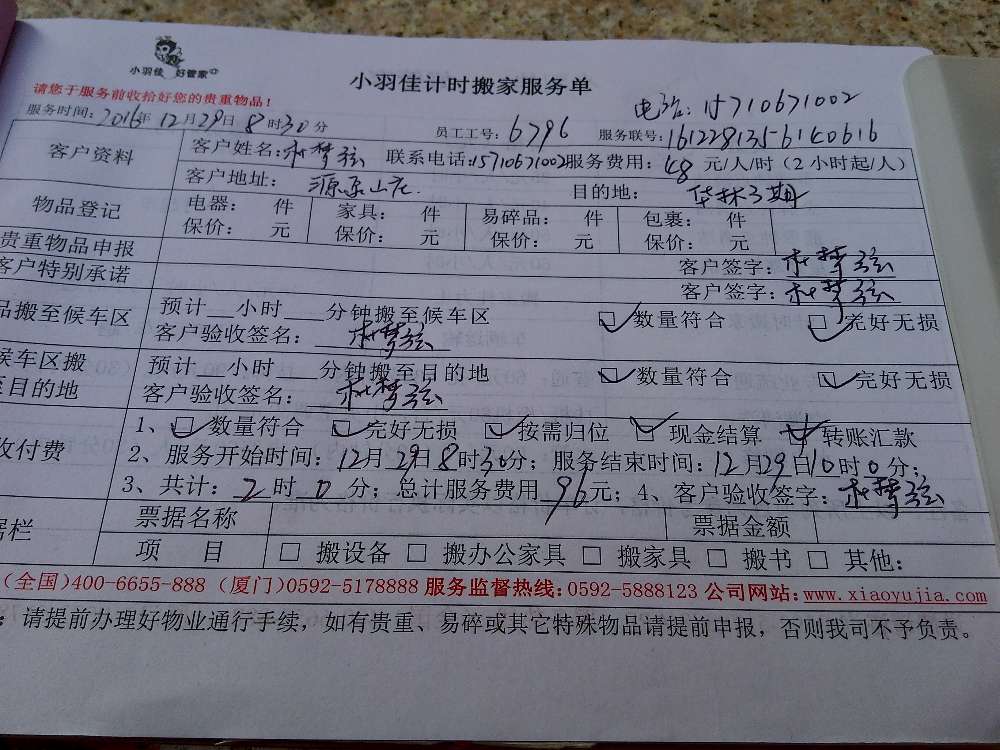 小羽佳 好管家
小羽佳计时搬家服务单
请您于服务前收拾好您的贵重物品！
电话：15710671002
服务时间：2016年12月29日8时30分 员工工号：6796 服务联号：16122813556140616
客户资料
客户姓名：梦弦 联系电话：15710671002 服务费用：48元/人/时（2小时起/人）
客户地址： 源泉山庄 目的地： 华林三期
物品登记
电器： 件 家具： 件 易碎品： 件 包裹： 件
保价： 元 保价： 元 保价： 元 保价： 元
贵重物品申报 客户签字：梦弦
客户特别承诺 客户签字：梦弦
品搬至候车区
预计__小时___分钟搬至候车区 数量符合 完好无损
客户验收签名：梦弦
候车区搬
至目的地
预计__小时___分钟搬至目的地 数量符合 完好无损
客户验收签名：梦弦
收付费
1、数量符合 完好无损 按需归位 现金结算 转账汇款
2、服务开始时间：12月29日8时30分；服务结束时间：12月29日10时0分；
3、共计：2时0分；总计服务费用96元；4、客户验收签字：梦弦
据栏
票据名称 票据金额
项 目 □ 搬设备 □ 搬办公家具 □ 搬家具 □ 搬书 □ 其他：
（全国)400-6655-888 (厦门)0592-5178888 服务监督热线：0592-5888123 公司网站：www.xiaoyujia.com
：请提前办理好物业通行手续，如有贵重、易碎或其它特殊物品请提前申报，否则我司不予负责。